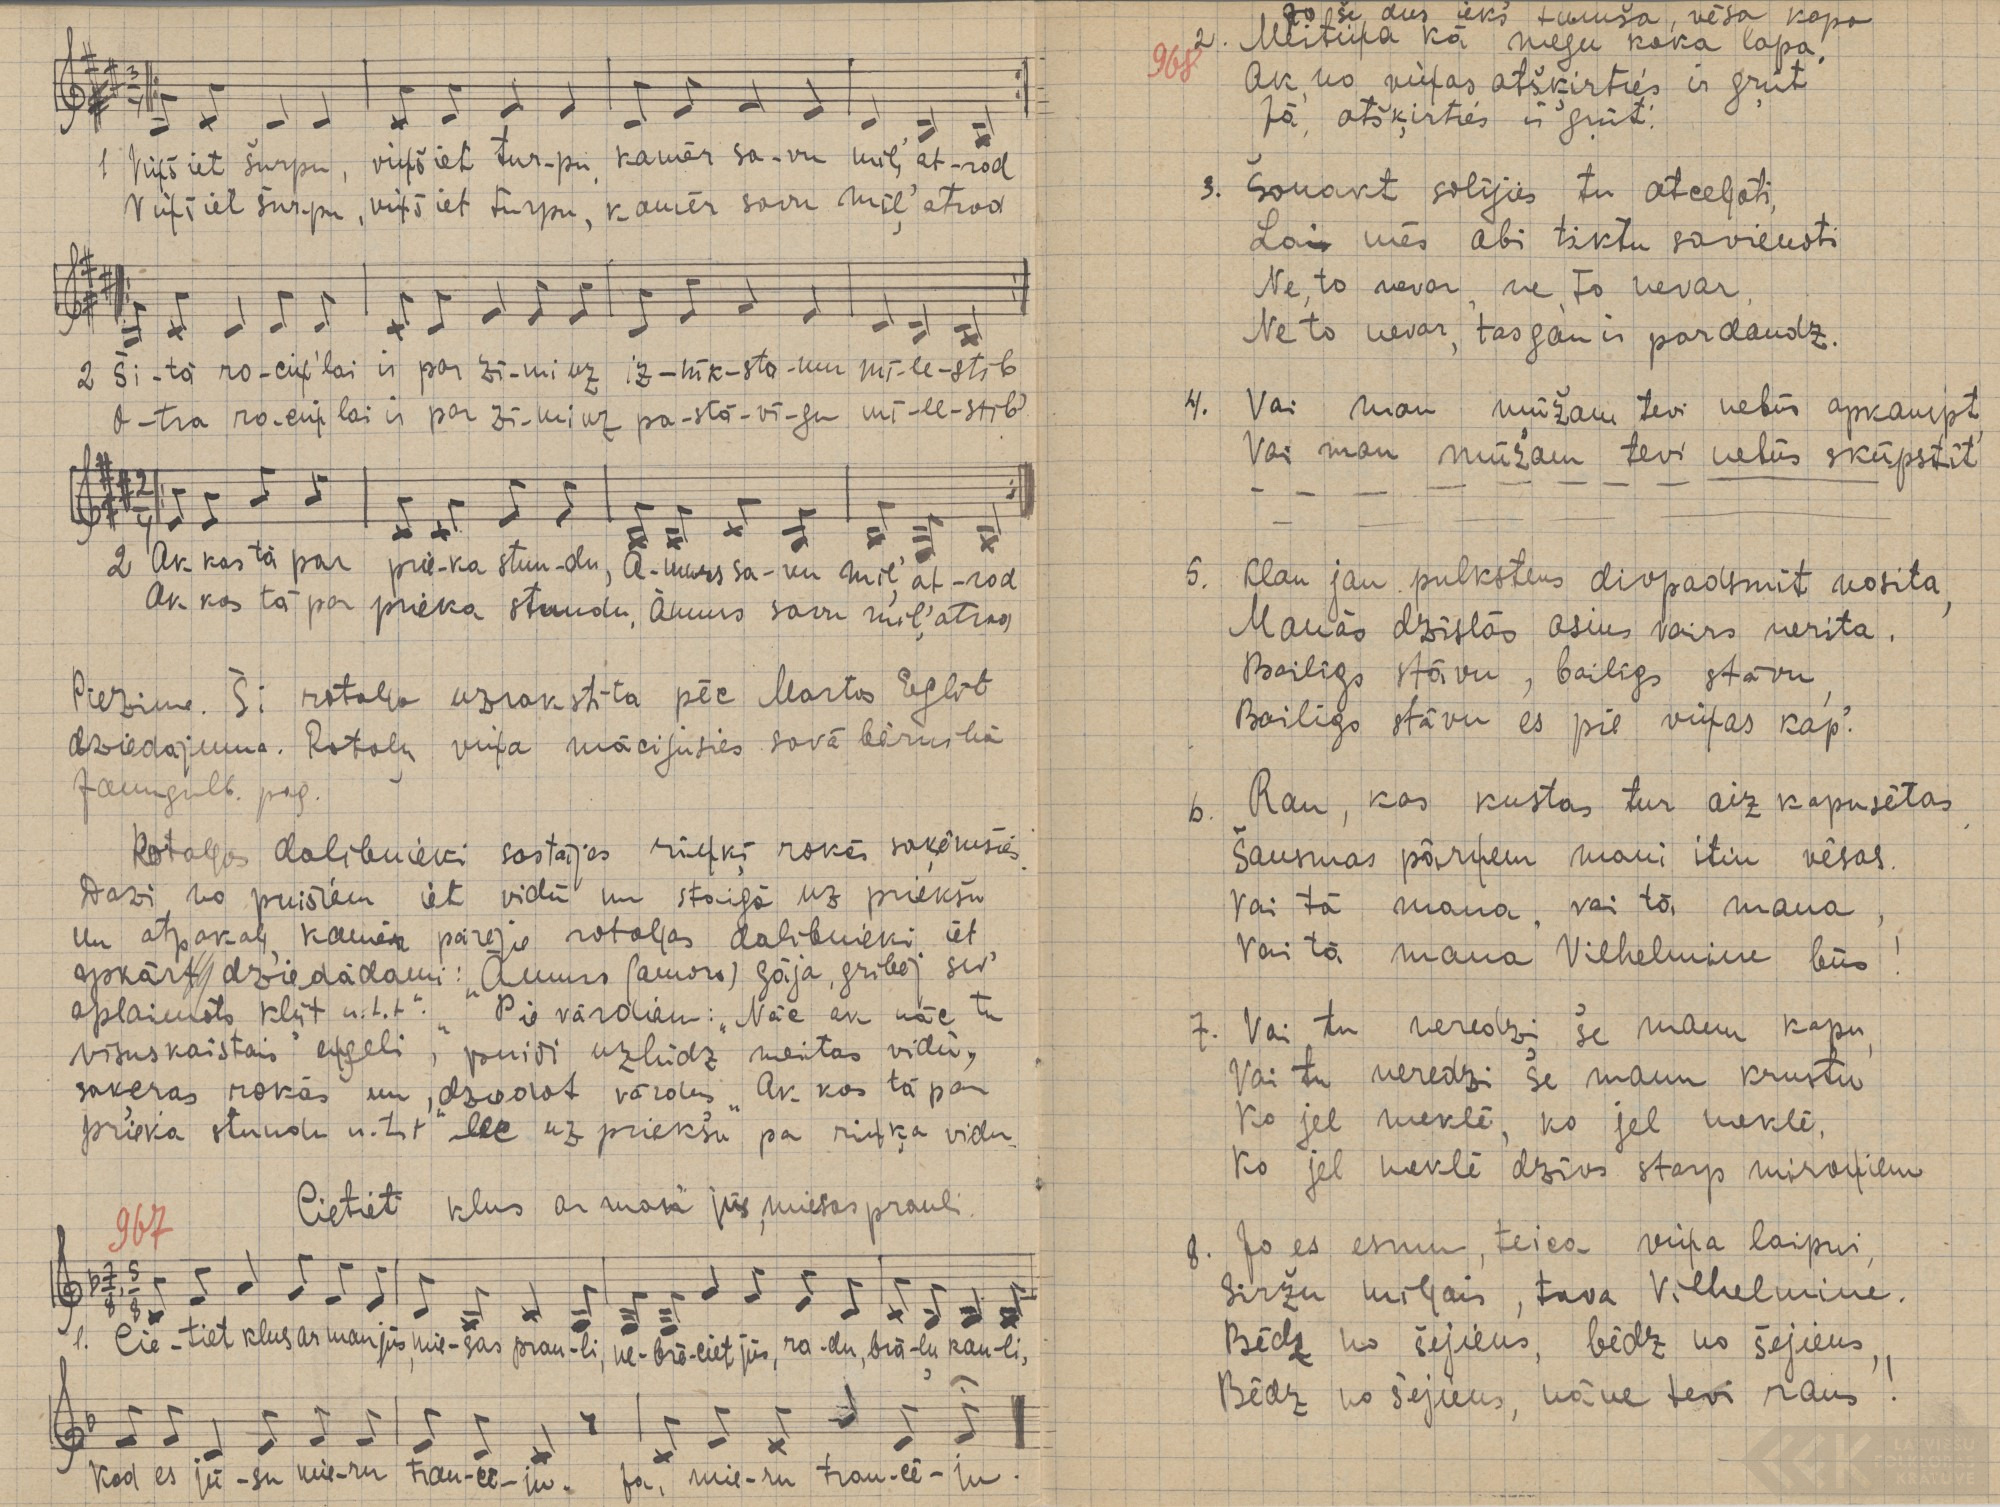 1 Viņš iet šurpu, viņš iet tur-pu, kamēr sa-vu mīļ' at-rod
Viņš iet šurpu, viņš iet turpu, kamēr savu mīļ' atrod
2 Ši-tā ro-ciņ' lai ir par zī-mi uz iz-nīk-sto-nu mī-le-stīb
O-tra ro-ciņ lai ir par zī-mi uz pa-stā-vī-gu mī-le-stīb'
2 Ak kas tā par prie-ka stun-du, Ā-murs sa-vu mīļ' at-rod
Ak kas tā par prieka stundu, Āmurs savu mīļ' atrod
Piezīme. Šī rotaļa uzrakstīta pēc Martas Eglīt
dziedājuma. Rotaļu viņa mācījusies savā bērnībā
Jaungulb. pag.
Rotaļas dalībnieki sastājas riņķī rokās saķērušies.
Daži no puišiem iet vidū un staigā uz priekšu
un atpakaļ, kamēr pārējie rotaļas dalībnieki iet
apkārt, dziedādami: „Āmurs (amors) gāja, gribēj sev'
aplaimots kļūt u.t.t". Pie vārdiem: „Nāc ak nāc tu
visuskaistais eņģeli", puiši uzlūdz meitas vidū,
sakeras rokās un, dziedot vārdus „Ak kas tā par
prieka stundu u.t.t" lec uz priekšu pa riņķa vidu.
967 Cietiet klus ar man' jūs, miesas prauli.
1. Cie-tiet klus ar man jūs, mie-sas prau-li, ne-brē-ciet jūs, ra-du, brā-ļu kau-li,
Kad es jū-su mie-ru trau-cē-ju. Ja, mie-ru trau-cē-ju.
Jo še dus iekš tumša, vēsa kapa
968
2. Meitiņa kā megu koka lapa.
Ak, no viņas atšķirties ir grūt
Jā, atšķirties ir grūt'.
3. Šonakt solījies tu atceļoti,
Lai mēs abi tiktu savienoti
Ne, to nevar, ne, to nevar,
Ne to nevar, tas gan ir pardaudz.
4. Vai man mūžam tevi nebūs apkampt,
Vai man mūžam tevi nebūs skūpstīt
5. Klau jau pulkstens divpadsmit nosita,
Manās dzīslās asins vairs nerita.
Bailīgs stāvu, bailīgs stāvu,
Bailīgs stāvu es pie viņas kap'.
6. Rau, kas kustas tur aiz kapusētas
Šausmas pārņem mani itin vēsas.
Vai tā mana, vai tā mana,
Vai tā mana Vilhelmine būs!
7. Vai tu neredzi še manu kapu,
Vai tu neredzi še manu krustu
Ko jel meklē, ko jel meklē,
Ko jel meklē dzīvs starp miroņiem
8. Jo es esmu, teica viņa laipni,
Siržu mīļais, tava Vilhelmine.
Bēdz no šejiens, bēdz no šejiens,
Bēdz no šejiens, nāve tevi raus!
LATVIEŠU
FOLKLORAS
KRĀTUVE